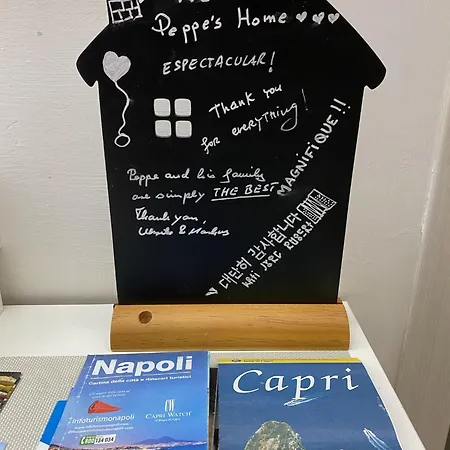 Peppe's Home
ESPECTACULAR!
Thank you
for everything!
Peppe and his family
are simply THE BEST
Thank you,
MAGNIFIQUE!!
대단히 감사합니다
Napoli
Cartina della città e itinerari turistici
infoturismonapoli
CAPRI WATCH
Capri